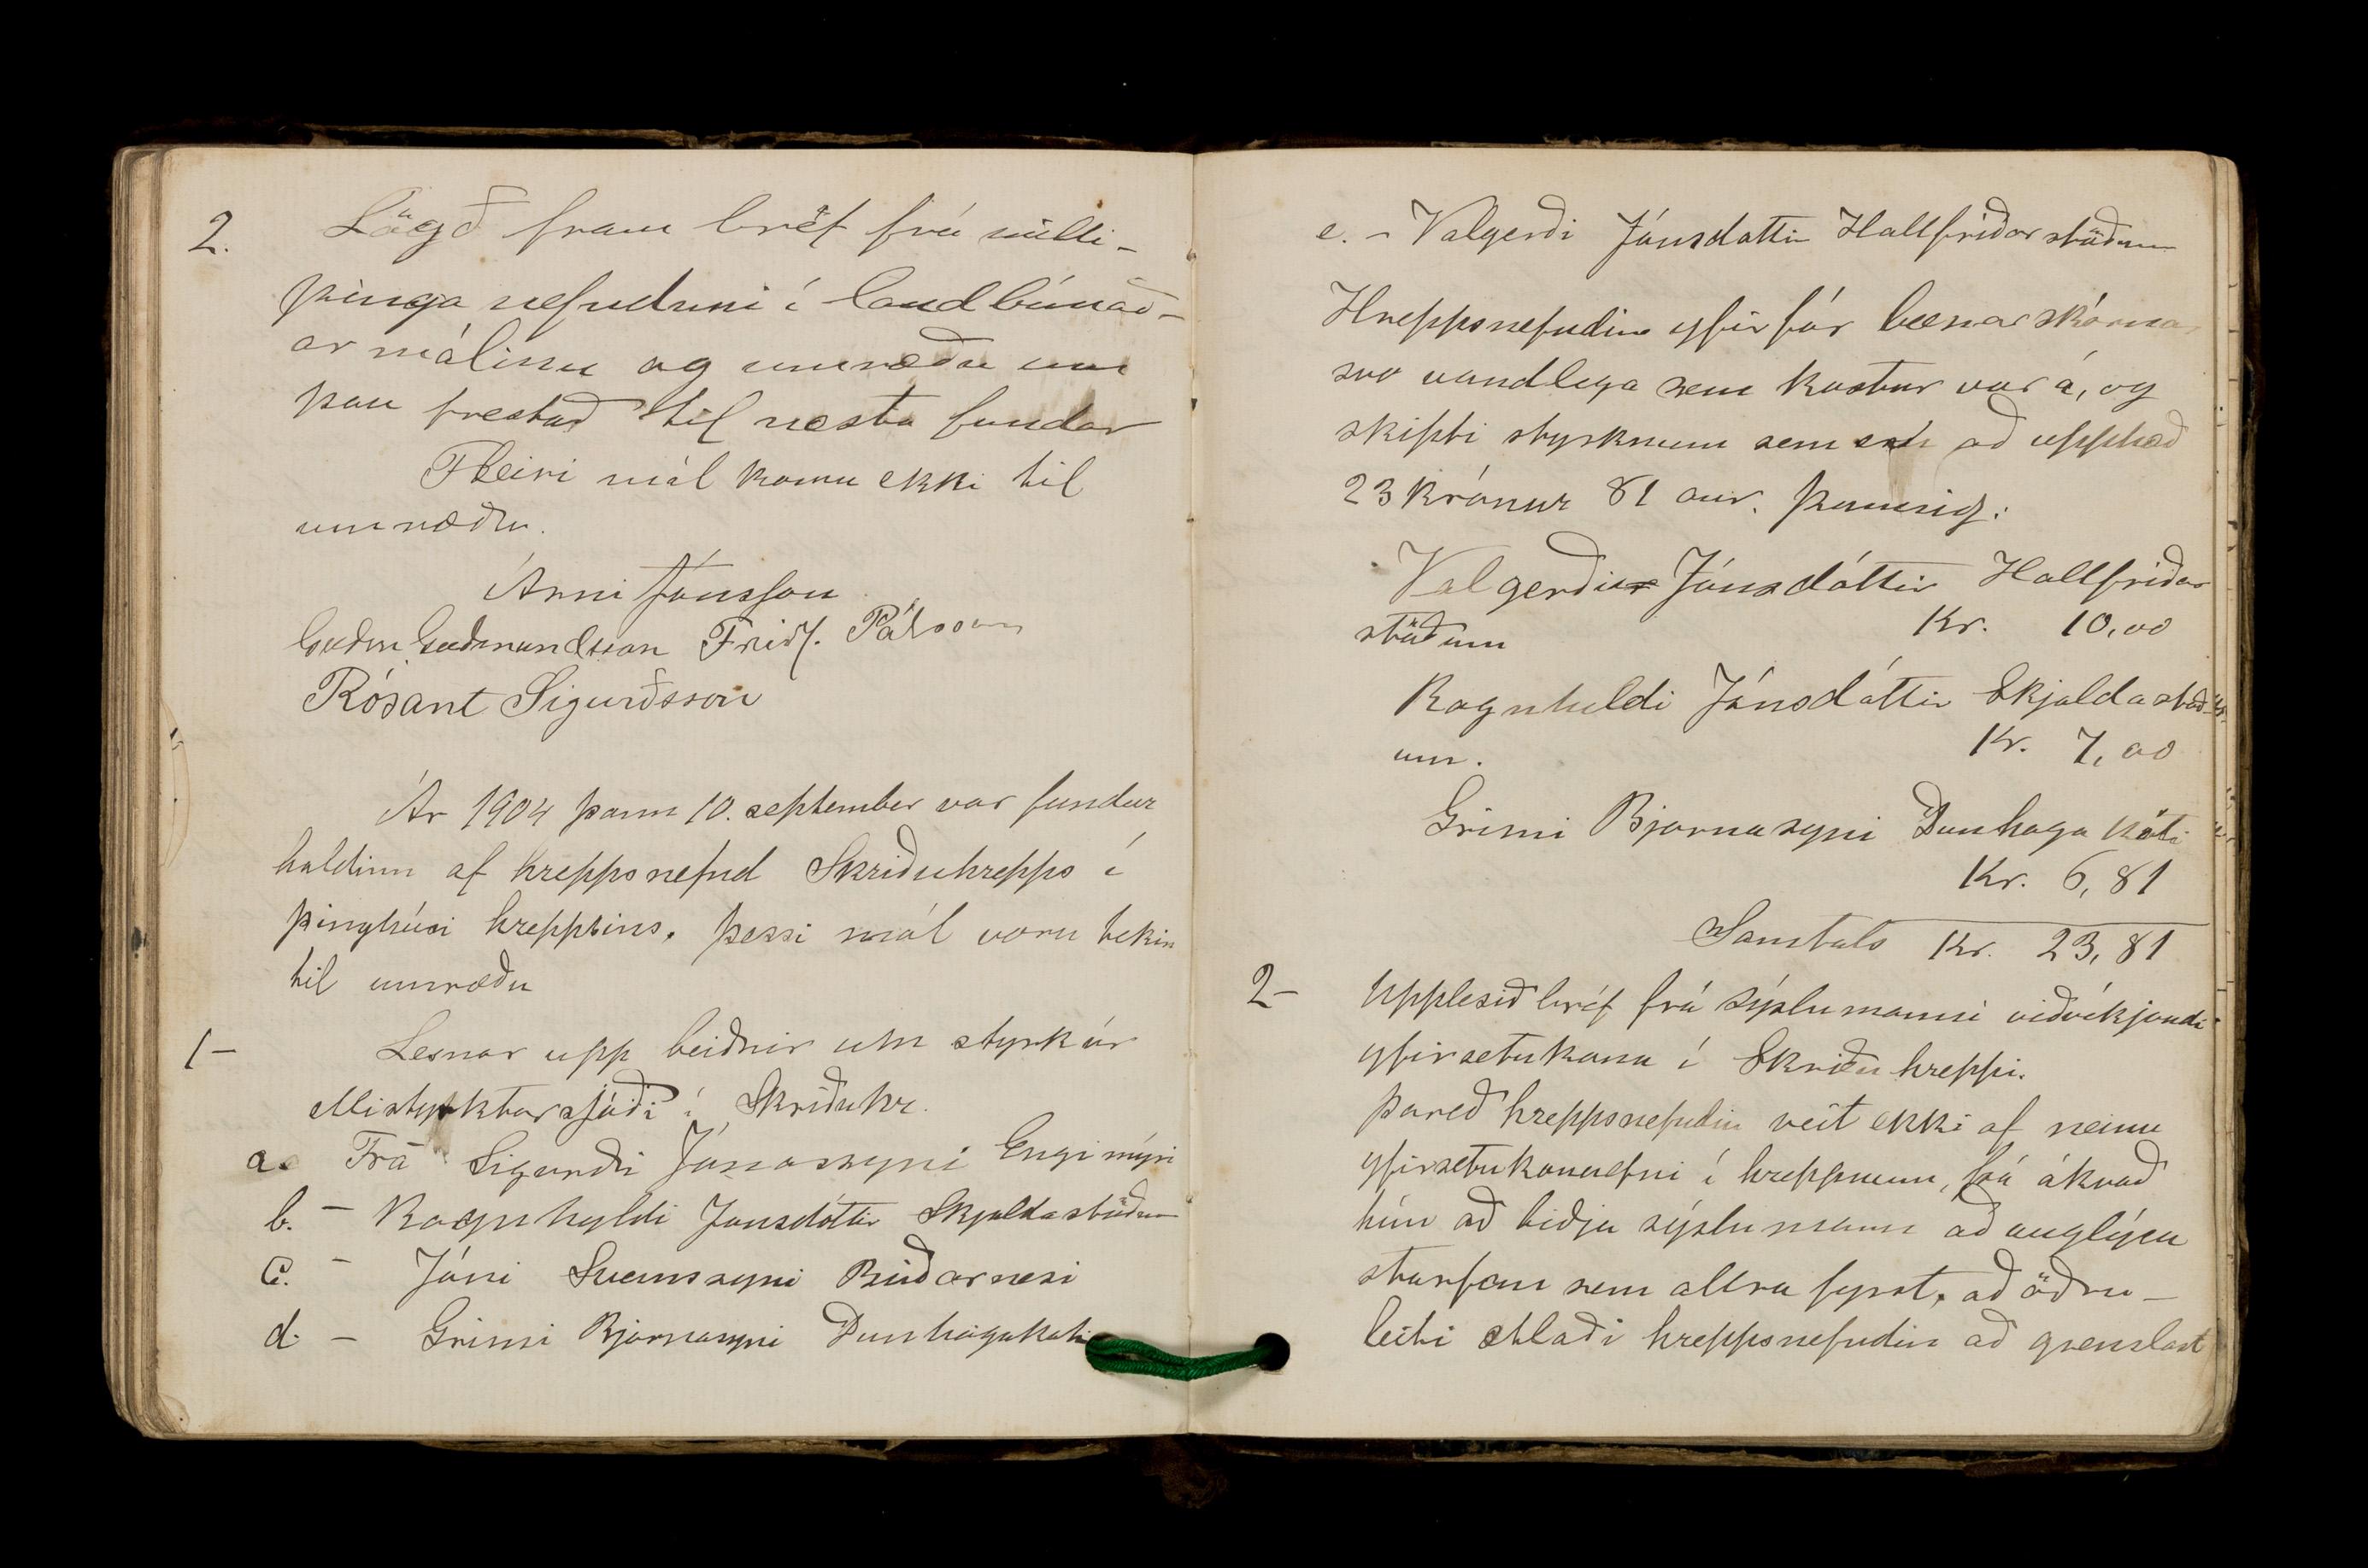 2. Lögð fram bréf frá milli-
þinga nefndinni í landbúnað-
ar málinu og umræðu um
þau frestað til næsta fundar
Fleiri mál komu ekki til
umræðu.
Árni Jónsson
Guðm. Guðmundsson Friðf. Pálsson
Rósant Sigurðsson
Ár 1904 þann 10. september var fundur
haldinn af hreppsnefnd Skriðuhrepps í
þinghúsi hreppsins. Þessi mál voru tekin
til umræðu
1- Lesnar upp beiðnir um styrk úr
Mistyrktarsjóði í Skriðuhr.
a. Frá Sigurði Jónassyni Engimýri
b. - Ragnhyldi Jonsdóttir Skjaldastöðum
c. - Jóni Sveinssyni Búðarnesi
d. - Grimi Bjarnasyni Dunhagakoti
e. - Valgerði Jónsdottir Hallfríðarstöðum
Hreppsnefndin yfir fór bænarskárna
svo vandlega sem kostur var á, og
skipti styrknum sem er að upphæð
23 krónur 81 aur. þannig:
Valgerði Jónsdóttir Hallfríðar
stöðum Kr. 10,00
Ragnhildi Jónsdóttir Skjaldastöð-
um. Kr. 7,00
Grimi Bjarnasyni Dunhaga köti
Kr. 6,81
Samtals Kr. 23,81
2- Upplesið bréf frá sýslumanni viðvíkjandi
yfirsetukonu í Skriðuhreppi.
Þareð hreppsnefndin veit ekki af neinu
yfirsetukonuefni í hreppnum, þá ákvað
hún að biðja sýslumann að auglýsa
starfan sem allra fyrst, að öðru-
leiti ætlaði hreppsnefndin að grenslast